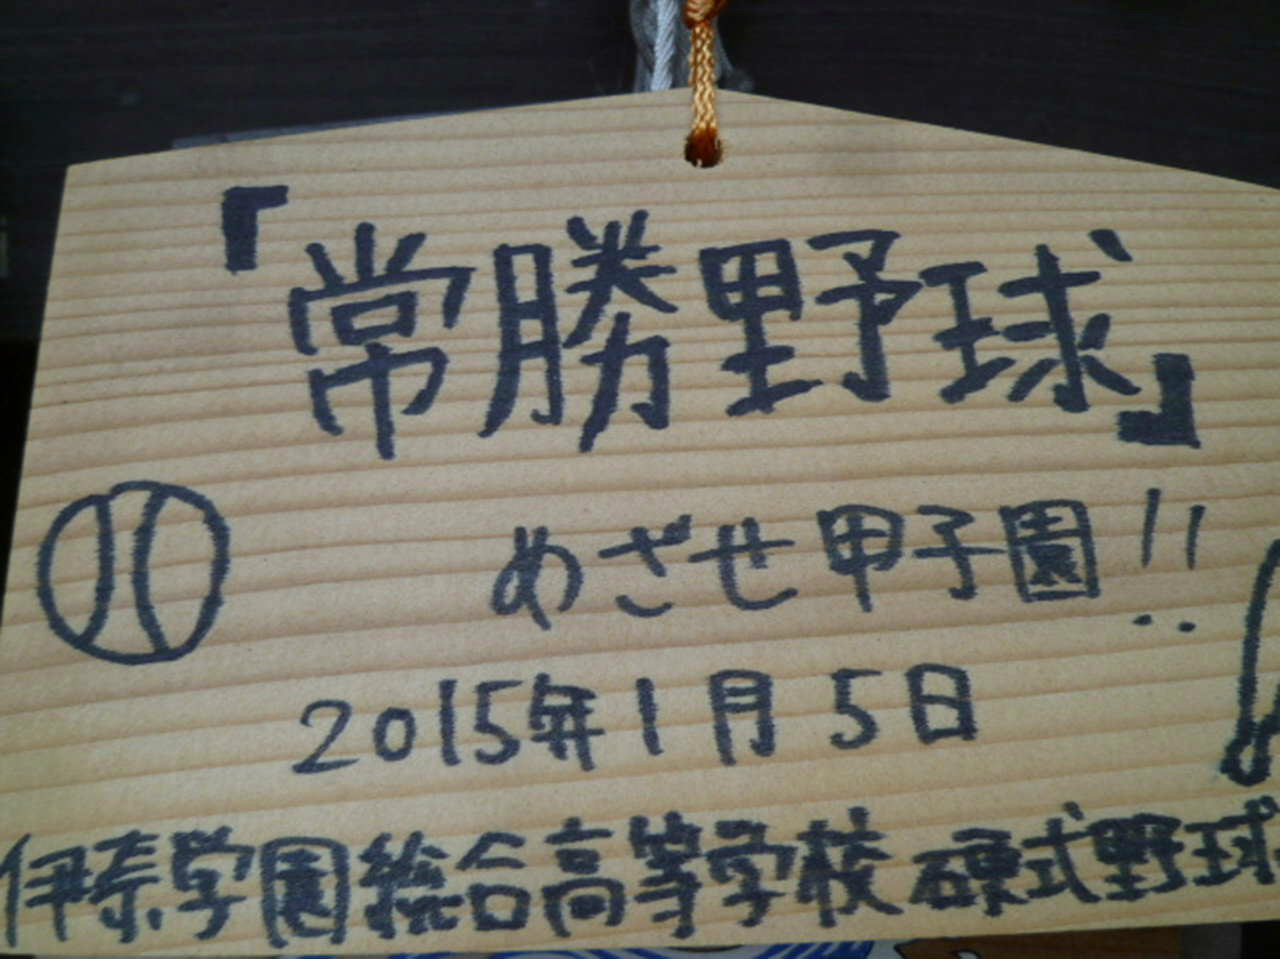 『常勝野球』
めざせ甲子園!!
2015年1月5日
伊奈学園総合高等学校 硬式野球